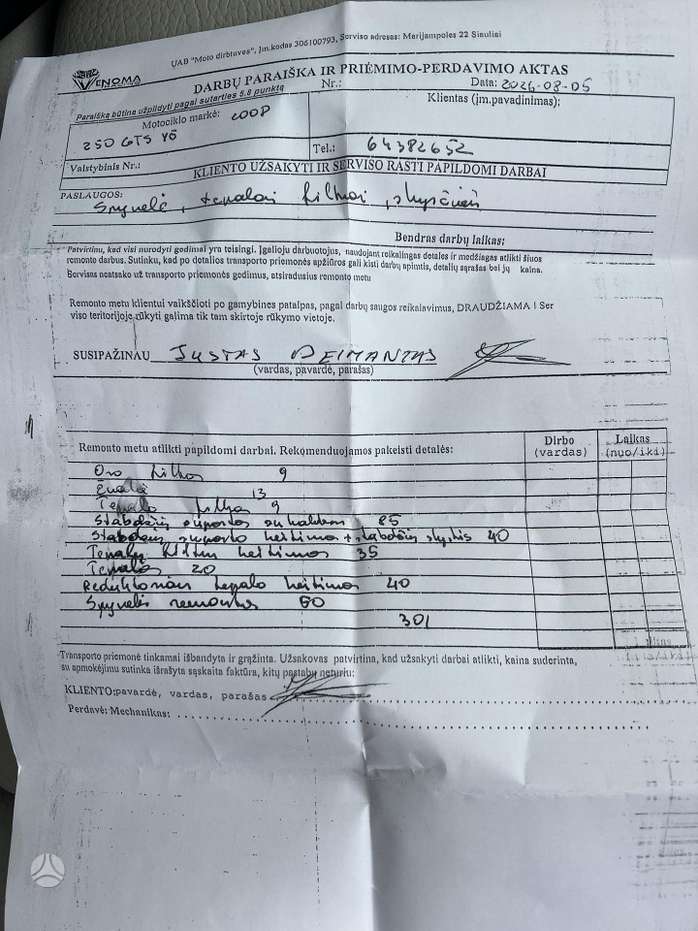 UAB "Moto dirbtuvės", Įm.kodas 306100793, Serviso adresas: Marijampolės 22 Šiauliai
VENOMA
DARBŲ PARAIŠKA IR PRIĖMIMO-PERDAVIMO AKTAS
Paraiška būtina užpildyti pagal sutarties 5.8 punktą
Nr.:
Data: 2024-08-05
Motociklo markė: LOOP
250 GTS V6
Klientas (įm.pavadinimas):
Valstybinis Nr.:
Tel.: 64382652
KLIENTO UŽSAKYTI IR SERVISO RASTI PAPILDOMI DARBAI
PASLAUGOS:
Spynelė, tepalai filtrai, skysčiai
Bendras darbų laikas:
Patvirtinu, kad visi nurodyti gedimai yra teisingi. Įgalioju darbuotojus, naudojant reikalingas detales ir medžiagas atlikti šiuos
remonto darbus. Sutinku, kad po detalios transporto priemonės apžiūros gali kisti darbų apimtis, detalių sąrašas bei jų kaina.
Servisas neatsako už transporto priemonės gedimus, atsiradusius remonto metu
Remonto metu klientui vaikščioti po gamybines patalpas, pagal darbų saugos reikalavimus, DRAUDŽIAMA ! Ser
viso teritorijoje rūkyti galima tik tam skirtoje rūkymo vietoje.
SUSIPAŽINAU JUSTAS DEIMANTAS
(vardas, pavardė, parašas)
Remonto metu atlikti papildomi darbai. Rekomenduojamos pakeisti detalės:
Dirbo
(vardas)
Laikas
(nuo/iki)
Oro filtras 9
Žvakė 13
Tepalo filtras 9
Stabdžių suportas su kaladėm 85
Stabdžių suporto keitimas + stabdžių skystis 40
Tepalų filtrų keitimas 35
Tepalas 20
Reduktoriaus tepalo keitimas 40
Spynelės remontas 60
301
Transporto priemonė tinkamai išbandyta ir grąžinta. Užsakovas patvirtina, kad užsakyti darbai atlikti, kaina suderinta,
su apmokėjimu sutinka išrašyta sąskaita faktūra, kitų pastabų neturiu:
KLIENTO:pavardė, vardas, parašas
Perdavė: Mechanikas: